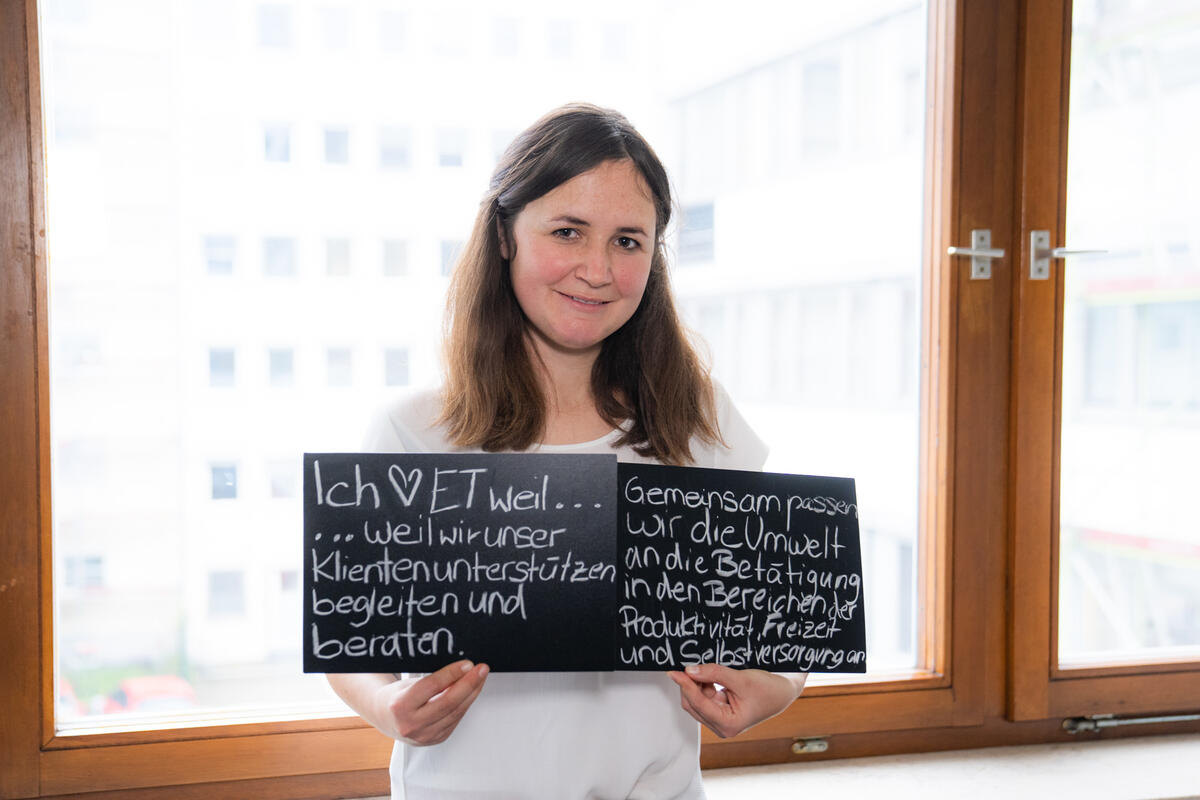 Ich ♡ ET weil...
...weil wir unser
Klienten unterstützen
begleiten und
beraten.
Gemeinsam passen
wir die Umwelt
an die Betätigung
in den Bereichen der
Produktivität, Freizeit
und Selbstversorgung an